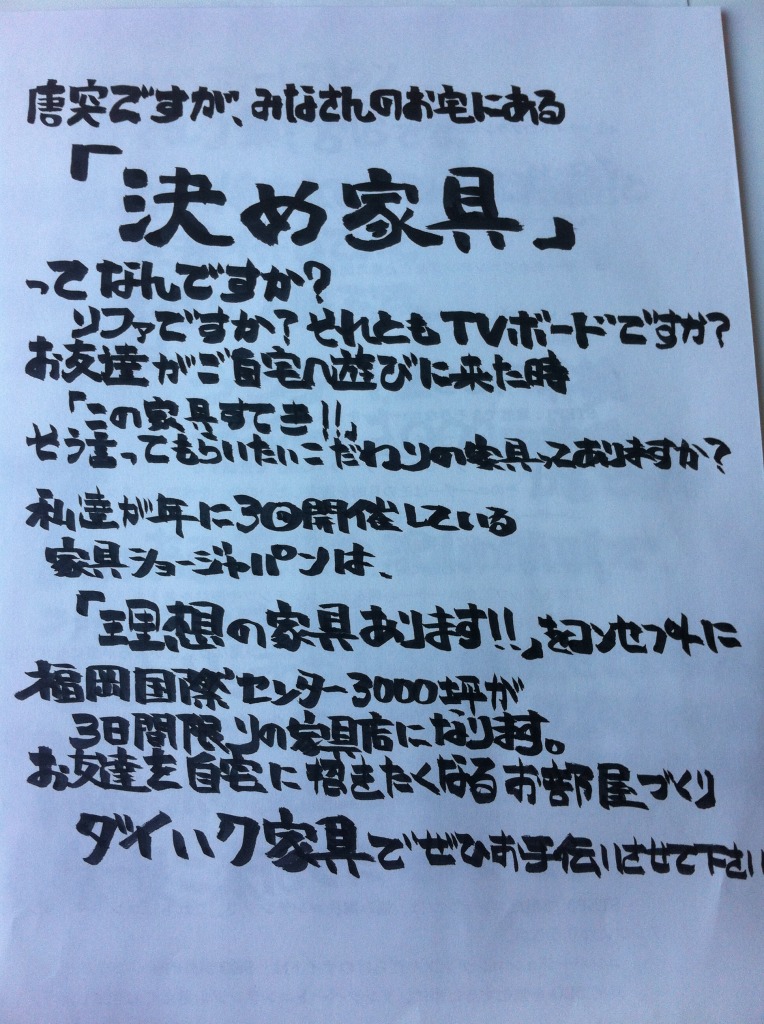 唐突ですが、みなさんのお宅にある
「決め家具」
ってなんですか?
ソファですか?それともTVボードですか?
お友達がご自宅へ遊びに来た時
「この家具すてき!!」
そう言ってもらいたいこだわりの家具ってありますか?
私達が年に3回開催している
家具ショージャパンは、
「理想の家具あります!!」をコンセプトに
福岡国際センター3000坪が
3日間限りの家具店になります。
お友達を自宅に招きたくなるお部屋づくり
ダイハク家具でぜひお手伝いさせて下さい